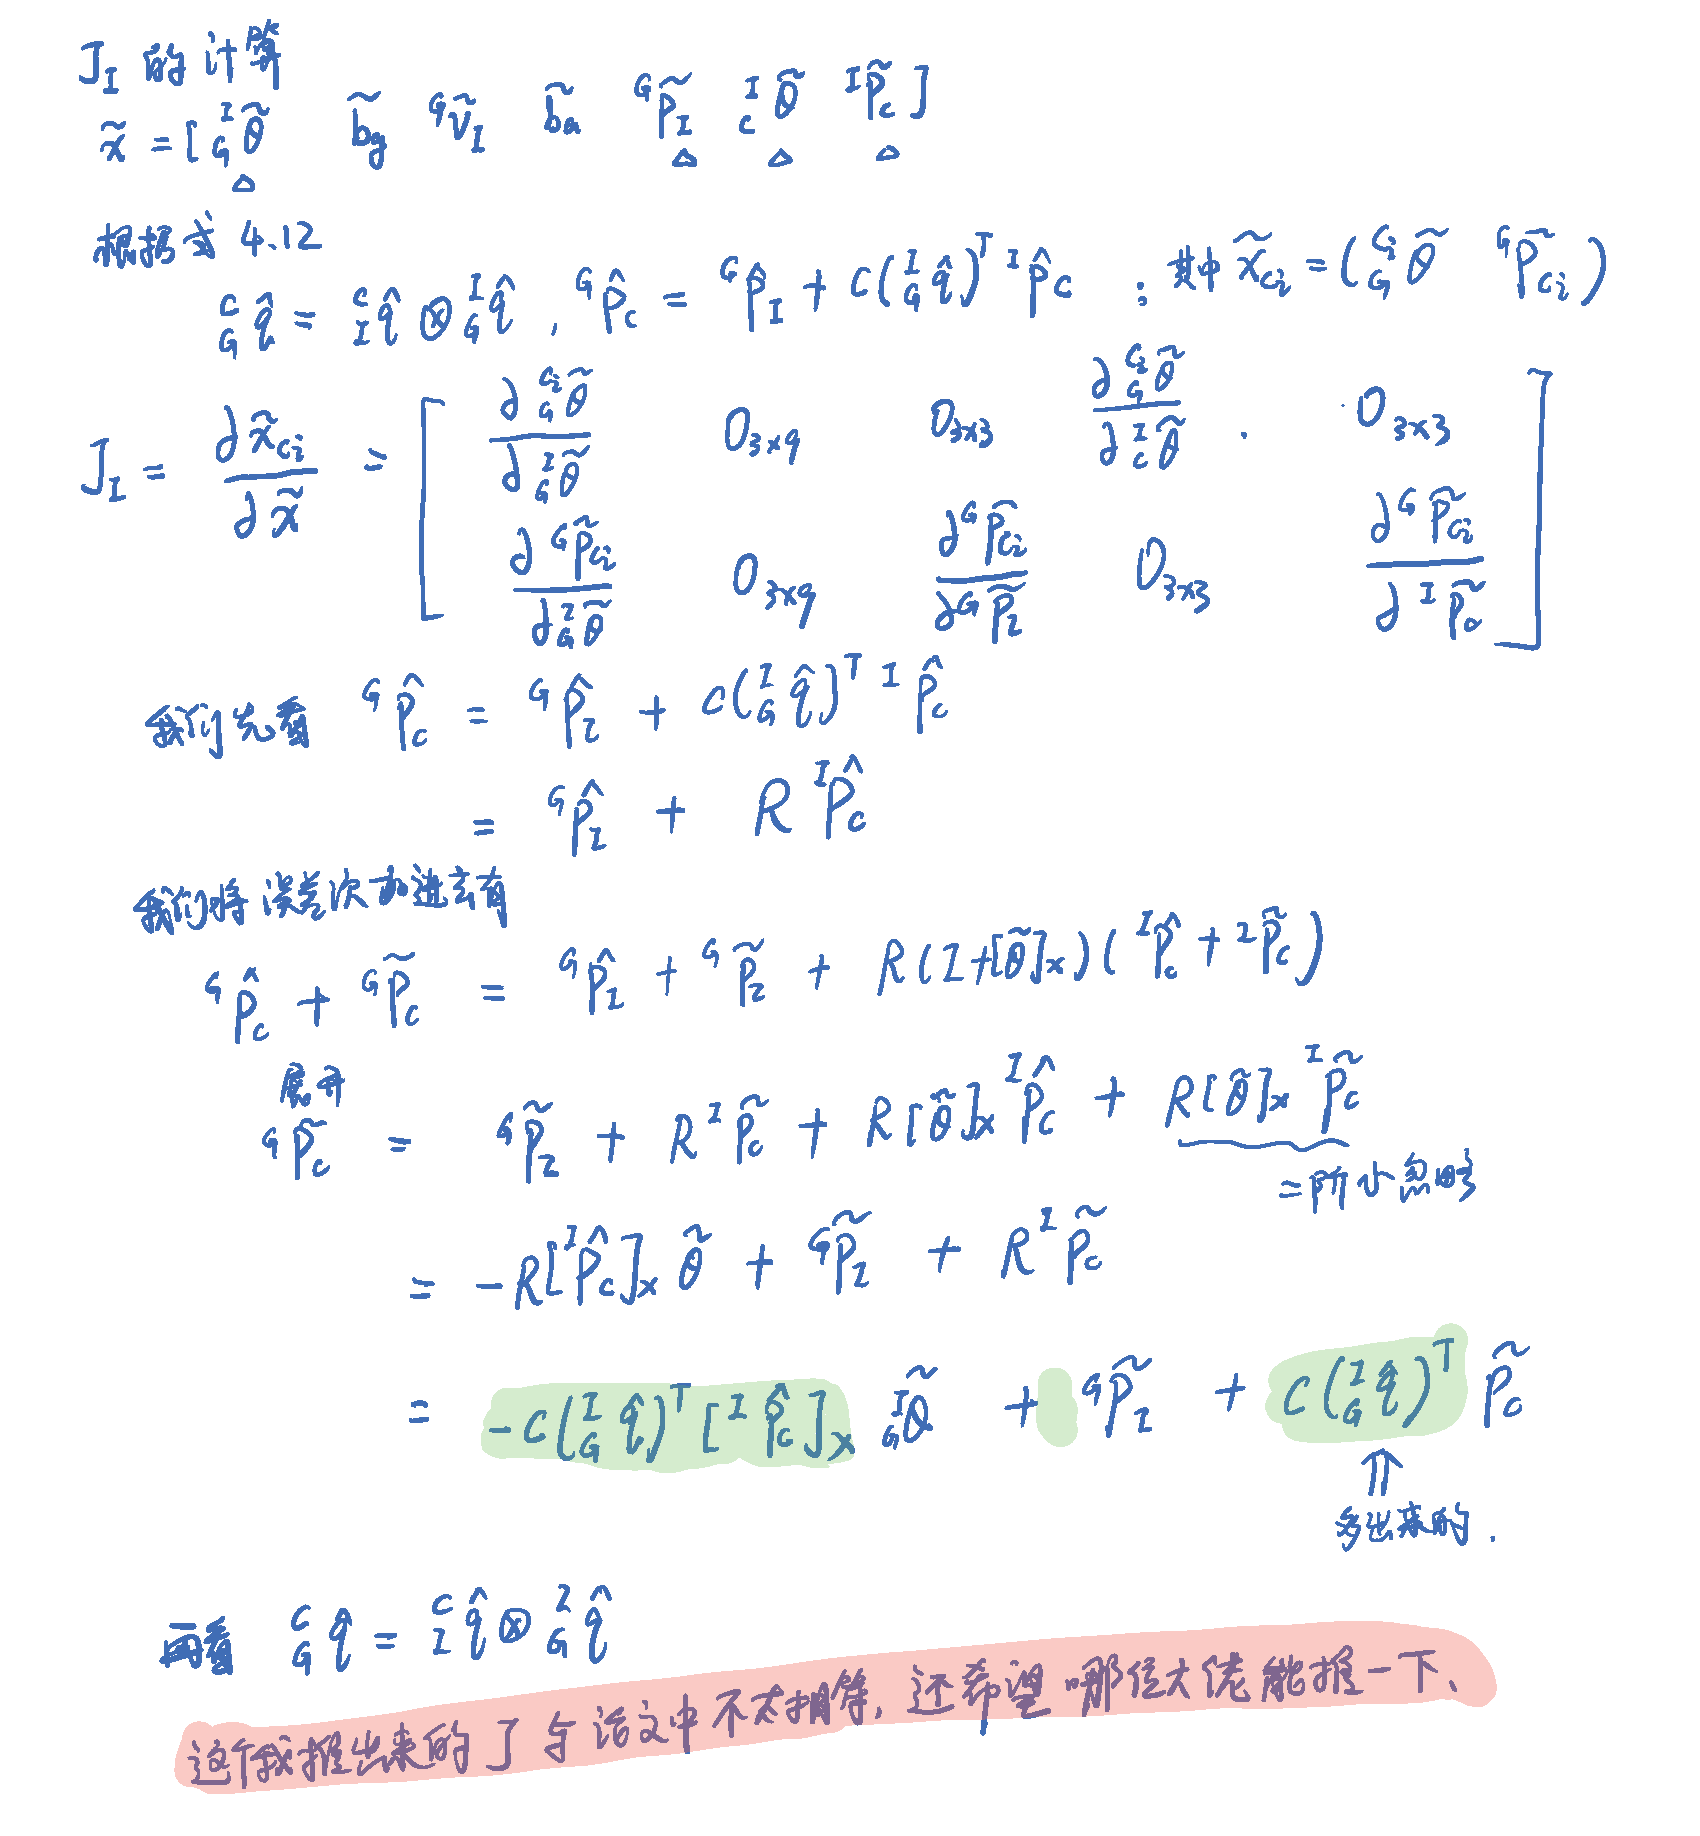 J_I 的计算
x̃ = [ ^I_G θ̃  b̃_g  ^G ṽ_I  b̃_a  ^G p̃_I  ^I_C θ̃  ^I p̃_c ]
△ △ △ △
根据式 4.12
^C_G q̂ = ^C_I q̂ ⊗ ^I_G q̂ , ^G p̂_c = ^G p̂_I + C(^I_G q̂)^T ^I p̂_C ; 其中 x̃_{Ci} = ( ^{Ci}_G θ̃  ^G p̃_{Ci} )
J_I = ∂x̃_{Ci} / ∂x̃ = [ ∂ ^{Ci}_G θ̃ / ∂ ^I_G θ̃  0_{3×9}  0_{3×3}  ∂ ^{Ci}_G θ̃ / ∂ ^I_C θ̃ .  0_{3×3}
∂ ^G p̃_{Ci} / ∂ ^I_G θ̃  0_{3×9}  ∂ ^G p̃_{Ci} / ∂ ^G p̃_I  0_{3×3}  ∂ ^G p̃_{Ci} / ∂ ^I p̃_c ]
我们先看 ^G p̂_c = ^G p̂_I + C(^I_G q̂)^T ^I p̂_c
= ^G p̂_I + R ^I p̂_c
我们将误差次加进去有
^G p̂_c + ^G p̃_c = ^G p̂_I + ^G p̃_I + R(I+[θ̃]_×)( ^I p̂_c + ^I p̃_c )
展开
^G p̃_c = ^G p̃_I + R ^I p̃_c + R[θ̃]_× ^I p̂_c + R[θ̃]_× ^I p̃_c
二阶小忽略
= -R[^I p̂_c]_× θ̃ + ^G p̃_I + R ^I p̃_c
= -C(^I_G q̂)^T [^I p̂_c]_× ^I_G θ̃ + ^G p̃_I + C(^I_G q̂)^T p̃_c
⇑
多出来的.
再看 ^C_G q̂ = ^C_I q̂ ⊗ ^I_G q̂
这个我推出来的了与论文中不太相等, 还希望哪位大佬能推一下、